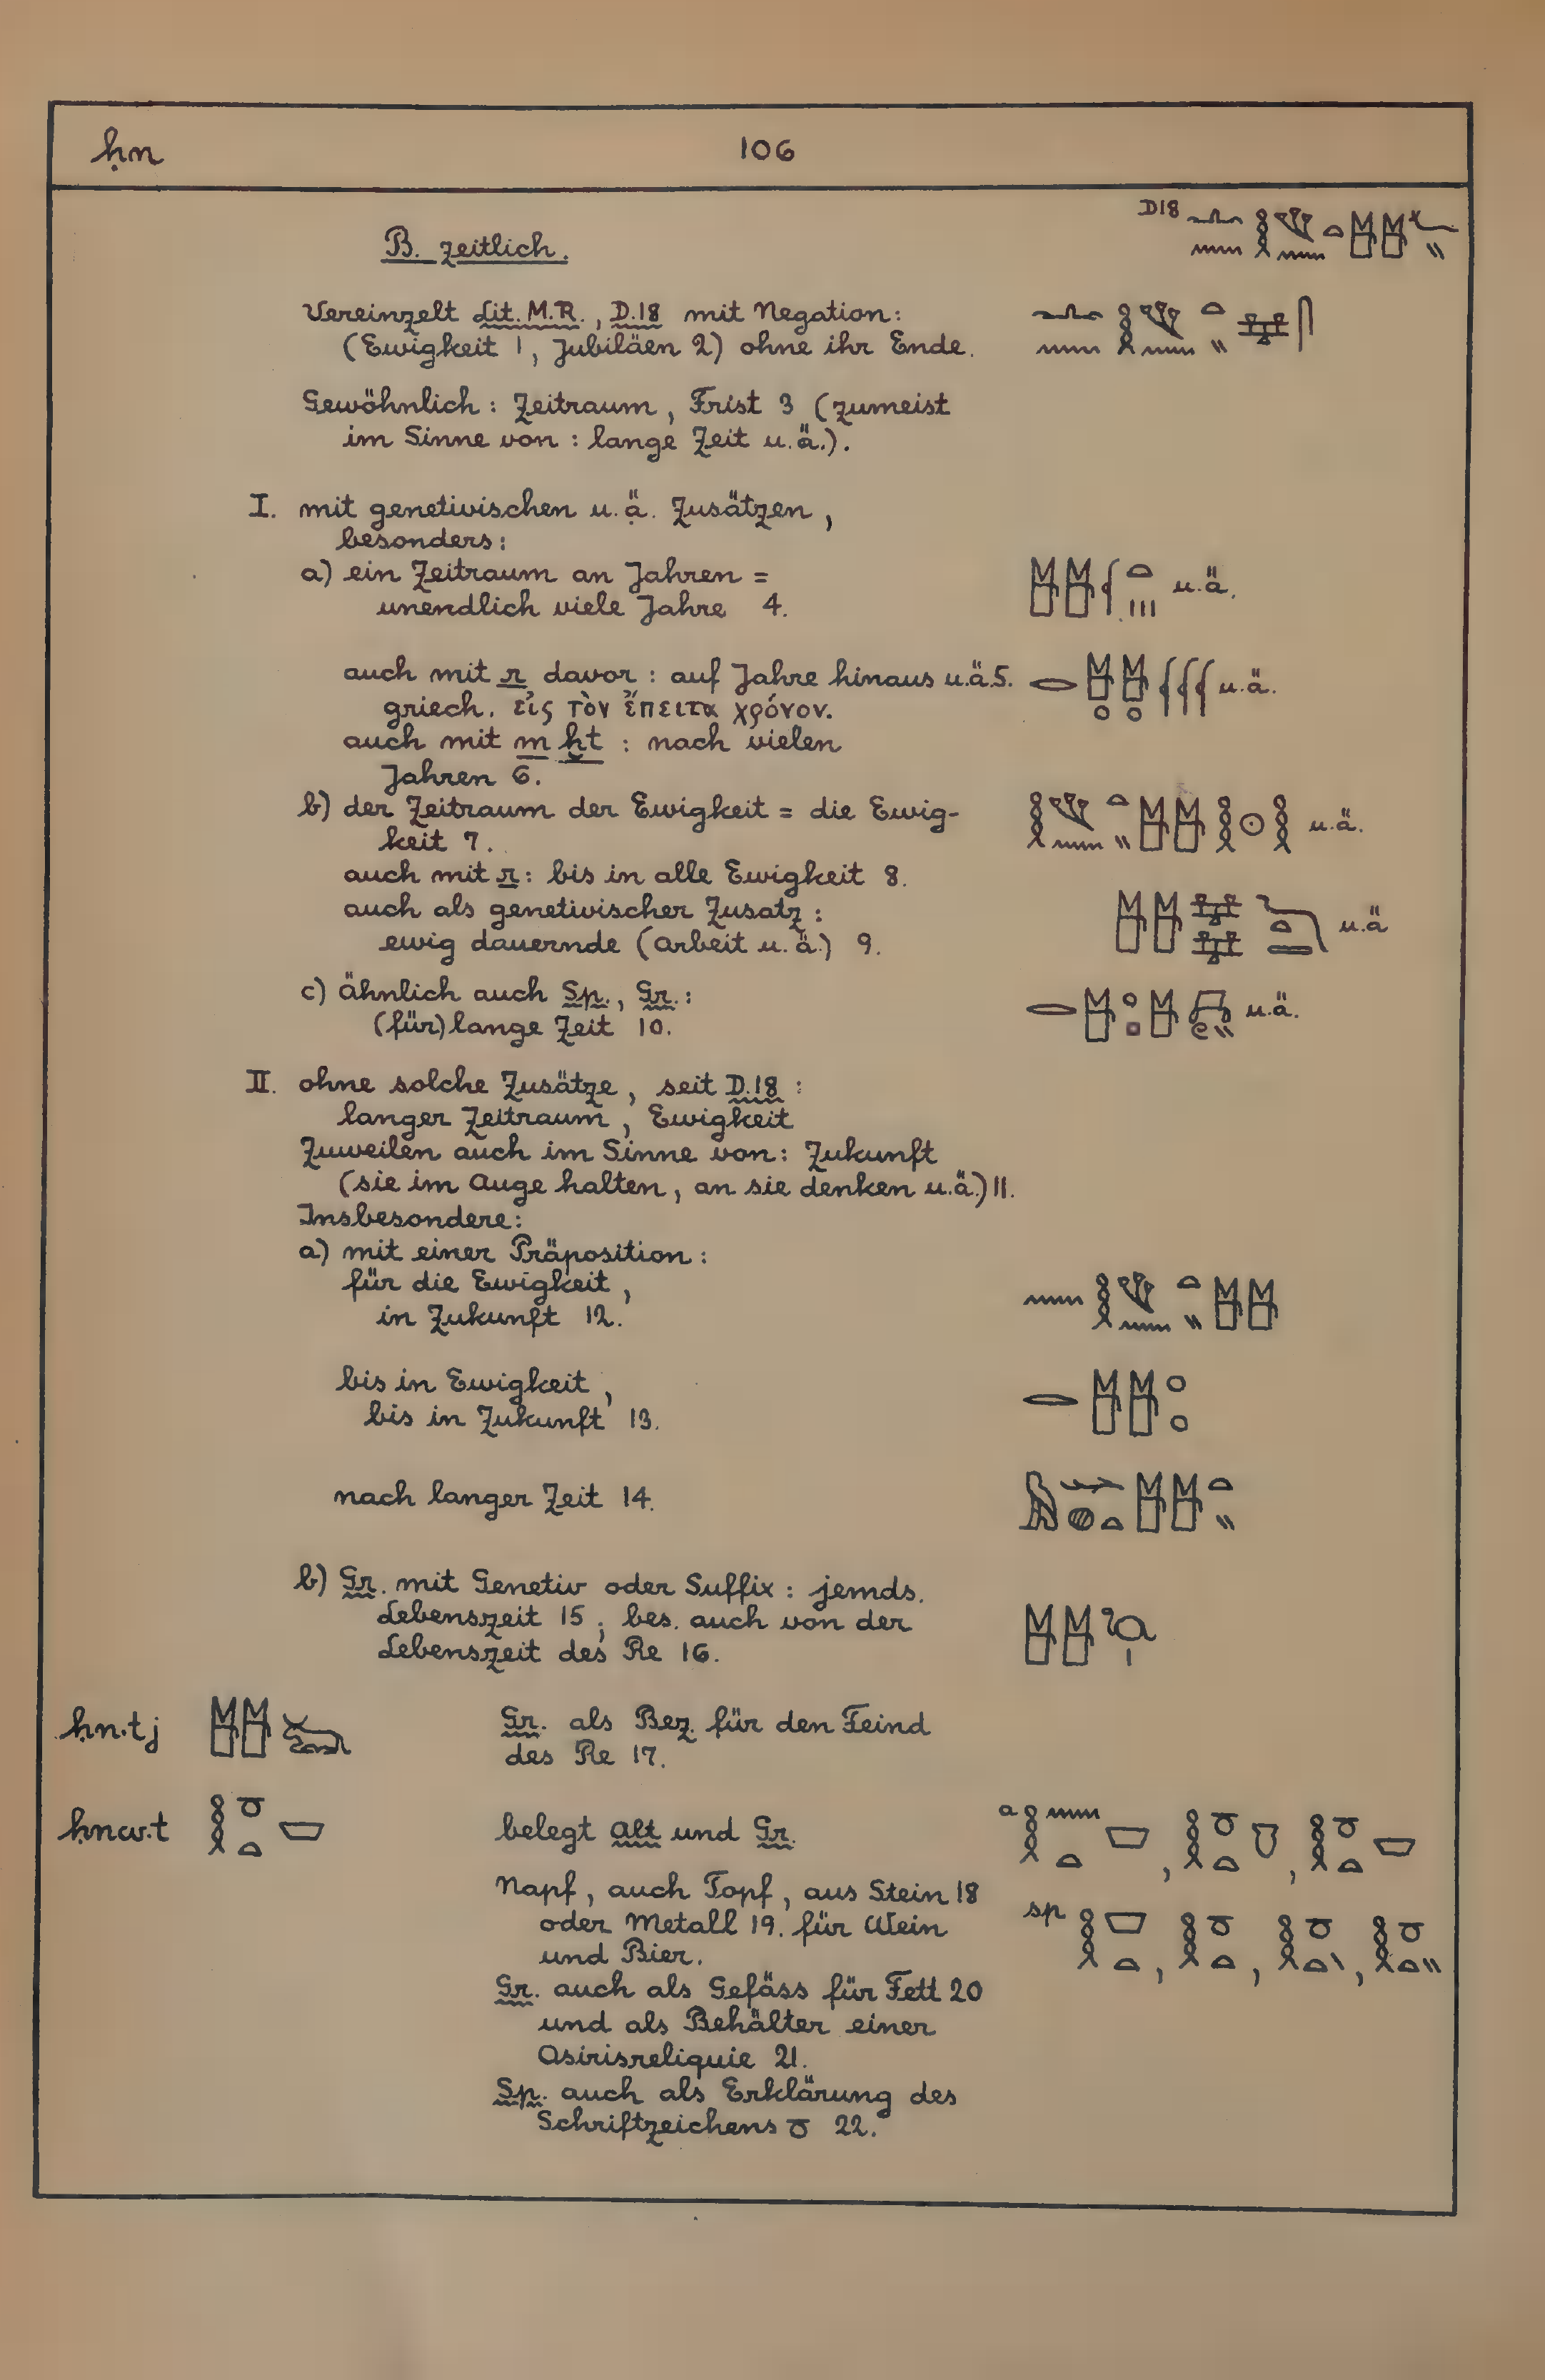 ḥn
106
D18
B. zeitlich.
Vereinzelt Lit. M.R., D.18 mit Negation:
(Ewigkeit 1, Jubiläen 2) ohne ihr Ende.
Gewöhnlich: Zeitraum, Frist 3 (zumeist
im Sinne von: lange Zeit u.ä.).
I. mit genetivischen u.ä. Zusätzen,
besonders:
a) ein Zeitraum an Jahren =
unendlich viele Jahre 4. u.ä.
auch mit r davor: auf Jahre hinaus u.ä. 5. u.ä.
griech. εἰς τὸν ἔπειτα χρόνον.
auch mit m ḫt: nach vielen
Jahren 6.
b) der Zeitraum der Ewigkeit = die Ewig- u.ä.
keit 7.
auch mit r: bis in alle Ewigkeit 8.
auch als genetivischer Zusatz: u.ä
ewig dauernde (Arbeit u.ä.) 9.
c) ähnlich auch Sp., Gr.: u.ä.
(für) lange Zeit 10.
II. ohne solche Zusätze, seit D.18:
langer Zeitraum, Ewigkeit
Zuweilen auch im Sinne von: Zukunft
(sie im Auge halten, an sie denken u.ä.) 11.
Insbesondere:
a) mit einer Präposition:
für die Ewigkeit,
in Zukunft 12.
bis in Ewigkeit,
bis in Zukunft 13.
nach langer Zeit 14.
b) Gr. mit Genetiv oder Suffix: jemds.
Lebenszeit 15; bes. auch von der
Lebenszeit des Re 16.
ḥn.tj Gr. als Bez. für den Feind
des Re 17.
ḥnw.t belegt Alt und Gr. a
Napf, auch Topf, aus Stein 18 sp
oder Metall 19. für Wein
und Bier.
Gr. auch als Gefäss für Fett 20
und als Behälter einer
Osirisreliquie 21.
Sp. auch als Erklärung des
Schriftzeichens 22.